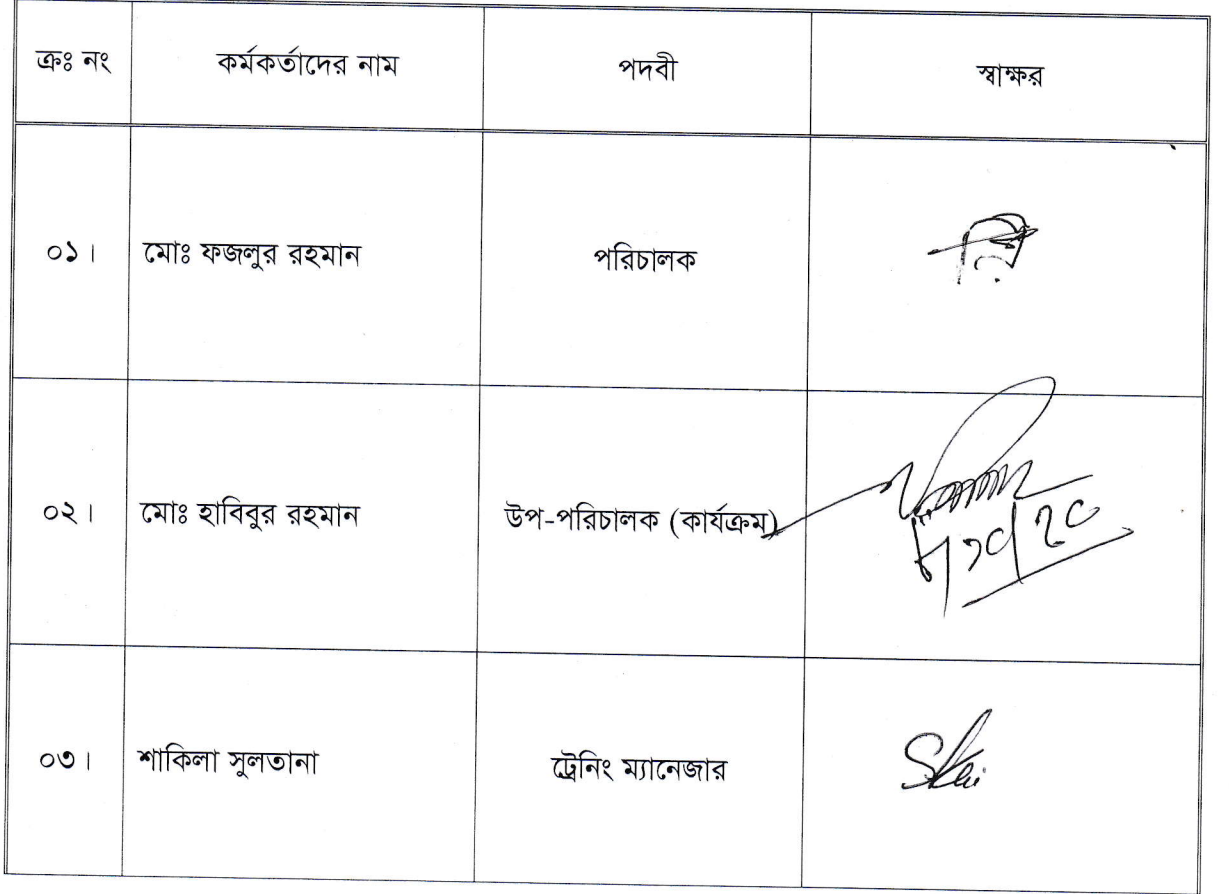 ক্রঃ নং কর্মকর্তাদের নাম পদবী স্বাক্ষর
০১। মোঃ ফজলুর রহমান পরিচালক
০২। মোঃ হাবিবুর রহমান উপ-পরিচালক (কার্যক্রম)
০৩। শাকিলা সুলতানা ট্রেনিং ম্যানেজার